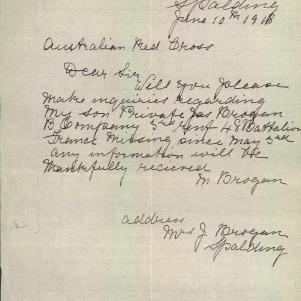 Spalding
June 10th 1918
Australian Red Cross
Dear Sir
Will you please
make inquiries regarding
My son Private Jas Brogan
B Company 3rd Reinf 48 Battalion
France missing since May 3rd
any information will be
thankfully recieved
M. Brogan
address
Mrs J. Brogan
Spalding